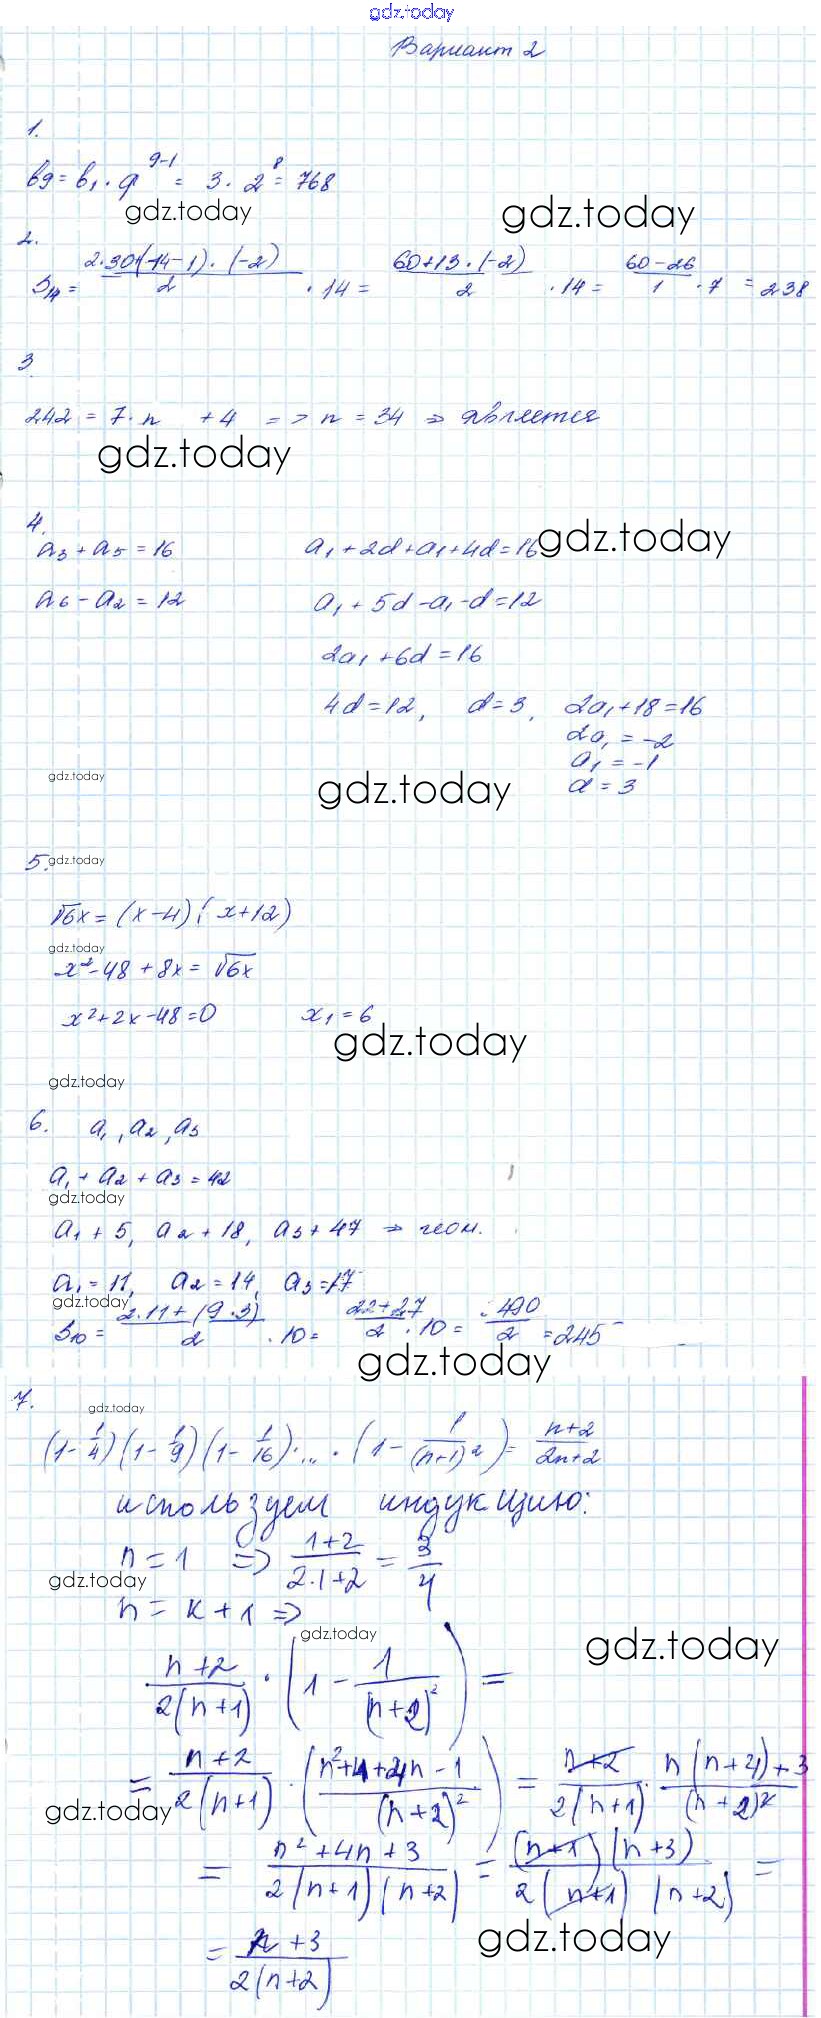 gdz.today
Вариант 2
1.
b9 = b1 · q^(9-1) = 3 · 2^8 = 768
gdz.today gdz.today
2.
S14 = (2·30+(14-1)·(-2))/2 · 14 = (60+13·(-2))/2 · 14 = (60-26)/1 · 7 = 238
3
242 = 7·n + 4 => n = 34 => является
gdz.today
4.
a3 + a5 = 16 a1 + 2d + a1 + 4d = 16 gdz.today
a6 - a2 = 12 a1 + 5d - a1 - d = 12
2a1 + 6d = 16
4d = 12, d = 3, 2a1 + 18 = 16
2a1 = -2
a1 = -1
gdz.today gdz.today d = 3
5. gdz.today
√6x = (x-4)(x+12)
gdz.today
x² - 48 + 8x = √6x
x² + 2x - 48 = 0 x1 = 6
gdz.today
gdz.today
6. a1, a2, a3
a1 + a2 + a3 = 42
gdz.today
a1 + 5, a2 + 18, a3 + 47 => геом.
a1 = 11, a2 = 14, a3 = 17
gdz.today
S10 = (2·11 + (9·3))/2 · 10 = (22+27)/2 · 10 = 490/2 = 245
gdz.today
7. gdz.today
(1 - 1/4)(1 - 1/9)(1 - 1/16)·...·(1 - 1/(n+1)²) = (n+2)/(2n+2)
используем индукцию:
n = 1 => (1+2)/(2·1+2) = 3/4
gdz.today
n = k + 1 =>
gdz.today gdz.today
(n+2)/(2(n+1)) · (1 - 1/(n+2)²) =
= (n+2)/(2(n+1)) · ((n²+4+4n-1)/(n+2)²) = (n+2)/(2(n+1)) · (n(n+4)+3)/(n+2)²
gdz.today
= (n²+4n+3)/(2(n+1)(n+2)) = ((n+1)(n+3))/(2(n+1)(n+2)) =
= (n+3)/(2(n+2))
gdz.today